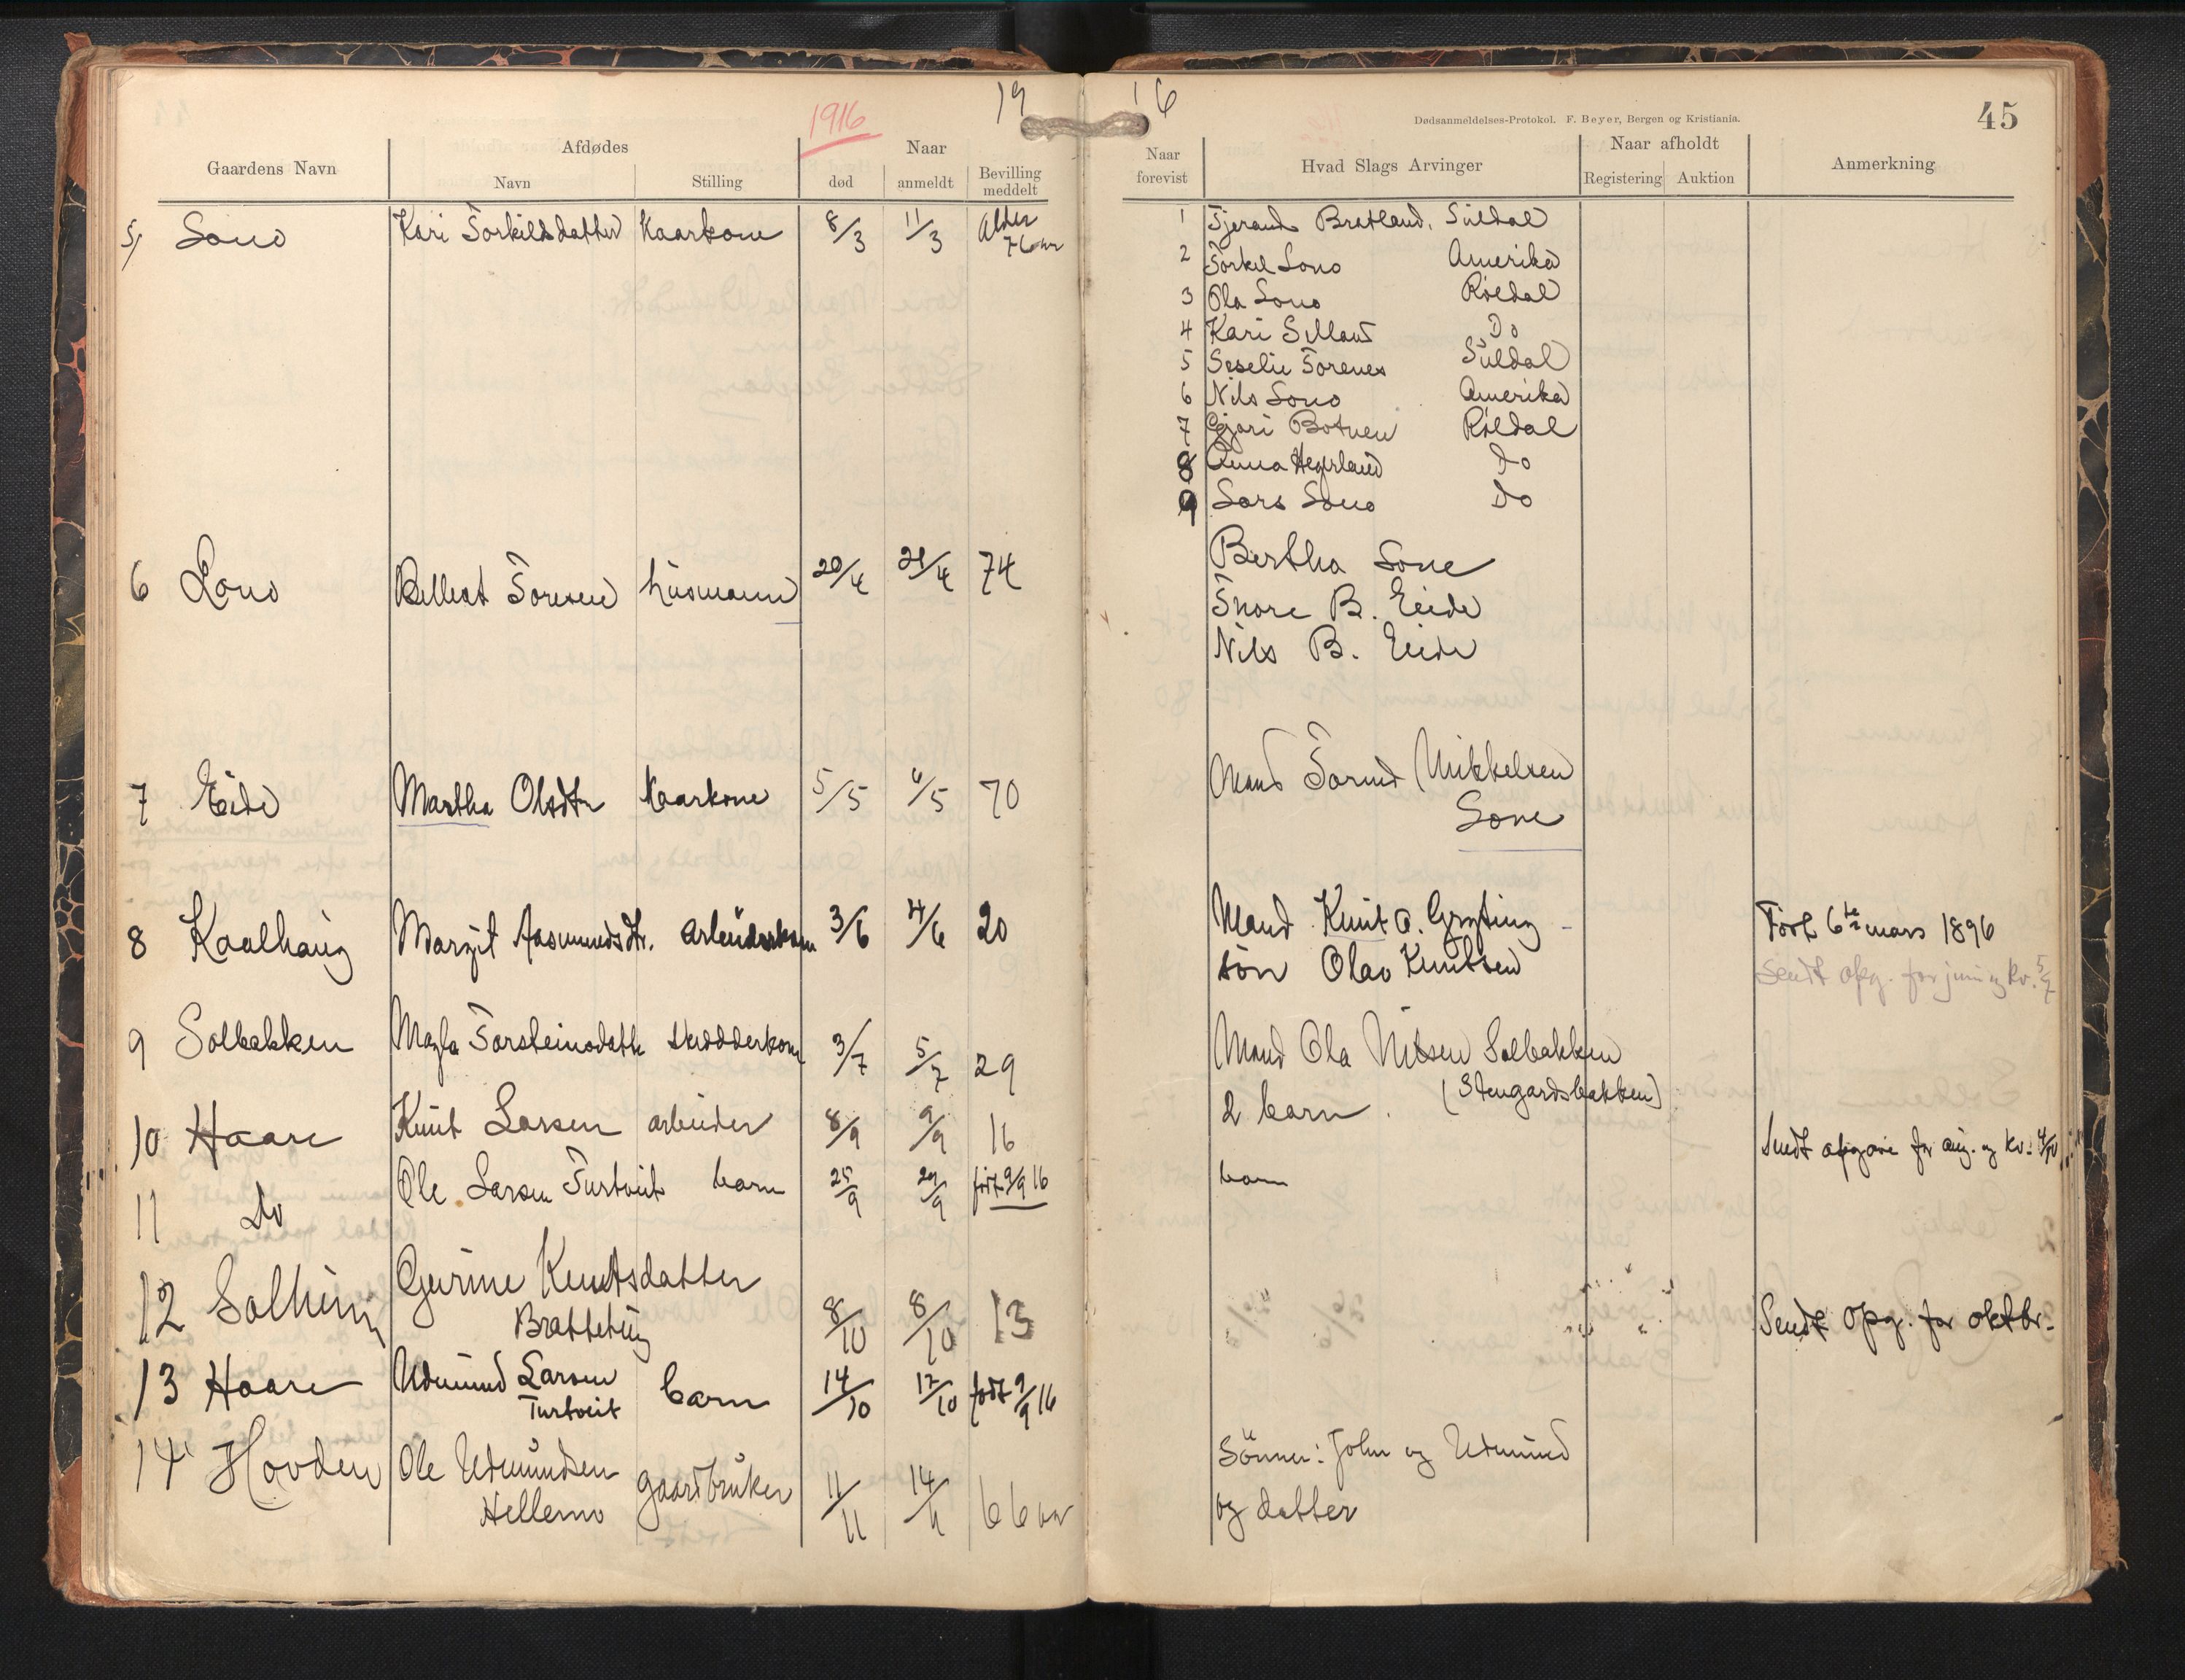 1916
19
16
Dødsanmeldelses-Protokol. F. Beyer, Bergen og Kristiania.
45
Gaardens Navn
Afdødes
Navn
Stilling
Naar
død
anmeldt
Bevilling meddelt
Naar forevist
Hvad Slags Arvinger
Naar afholdt
Registering
Auktion
Anmerkning
5/ Lono Kari Torkilsdatter Kaarkone 8/3 11/3 Alder 76 aar
1 Tjerand Bratland, Suldal
2 Torkel Lono Amerika
3 Ola Lono Røldal
4 Kari Do
5 Seselie Torenes Suldal
6 Nils Lono Amerika
7 Gjøri Botnen Røldal
8 Anna Hegerland Do
9 Lars Lono Do
6 Lono Toresen husmann 20/4 21/4 74
Bertha Lone
Thore B. Eide
Nils B. Eide
7 Eide Martha Olsdtr Kaarkone 5/5 6/5 70
Mand Mikkelsen
Lone
8 Kaalhaug Margit Aasmundsdtr. arbeiderkone 3/6 4/6 20
Mand Knut O. Grytting
søn Olav Knutsen
Født 6te mars 1896
Sendt opg. for juni og kv. 5/7
9 Solbakken Torsteinsdatter skredderkone 3/7 5/7 29
Mand Ola Nilsen Solbakken
(Stengardsbakken)
2 barn.
10 Haare Knut Larsen arbeider 8/9 9/9 16
Sendt opgave for aug. og kv. 4/10
11 Do Ole Larsen Turtveit barn 25/9 29/9 født 9/9 16
barn
12 Solheim Gurine Knutsdatter
Bratteteig 8/10 8/10 13
Sendt opg. for oktbr.
13 Haare Udmund Larsen
Turtveit barn 14/10 17/10 født 9/9 16
14 Hovden Ole Udmundsen
Hellemo gaardbruker 11/11 14/11 66 aar
Sönner: John og Udmund
og datter